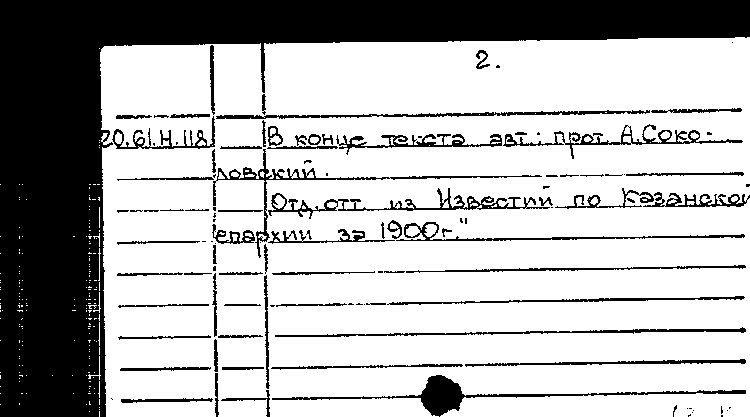 2.
20.61.Н.118 В конце текста авт.: прот. А.Соко-
ловский.
"Отд. отт. из Известий по Казанской
епархии за 1900г."